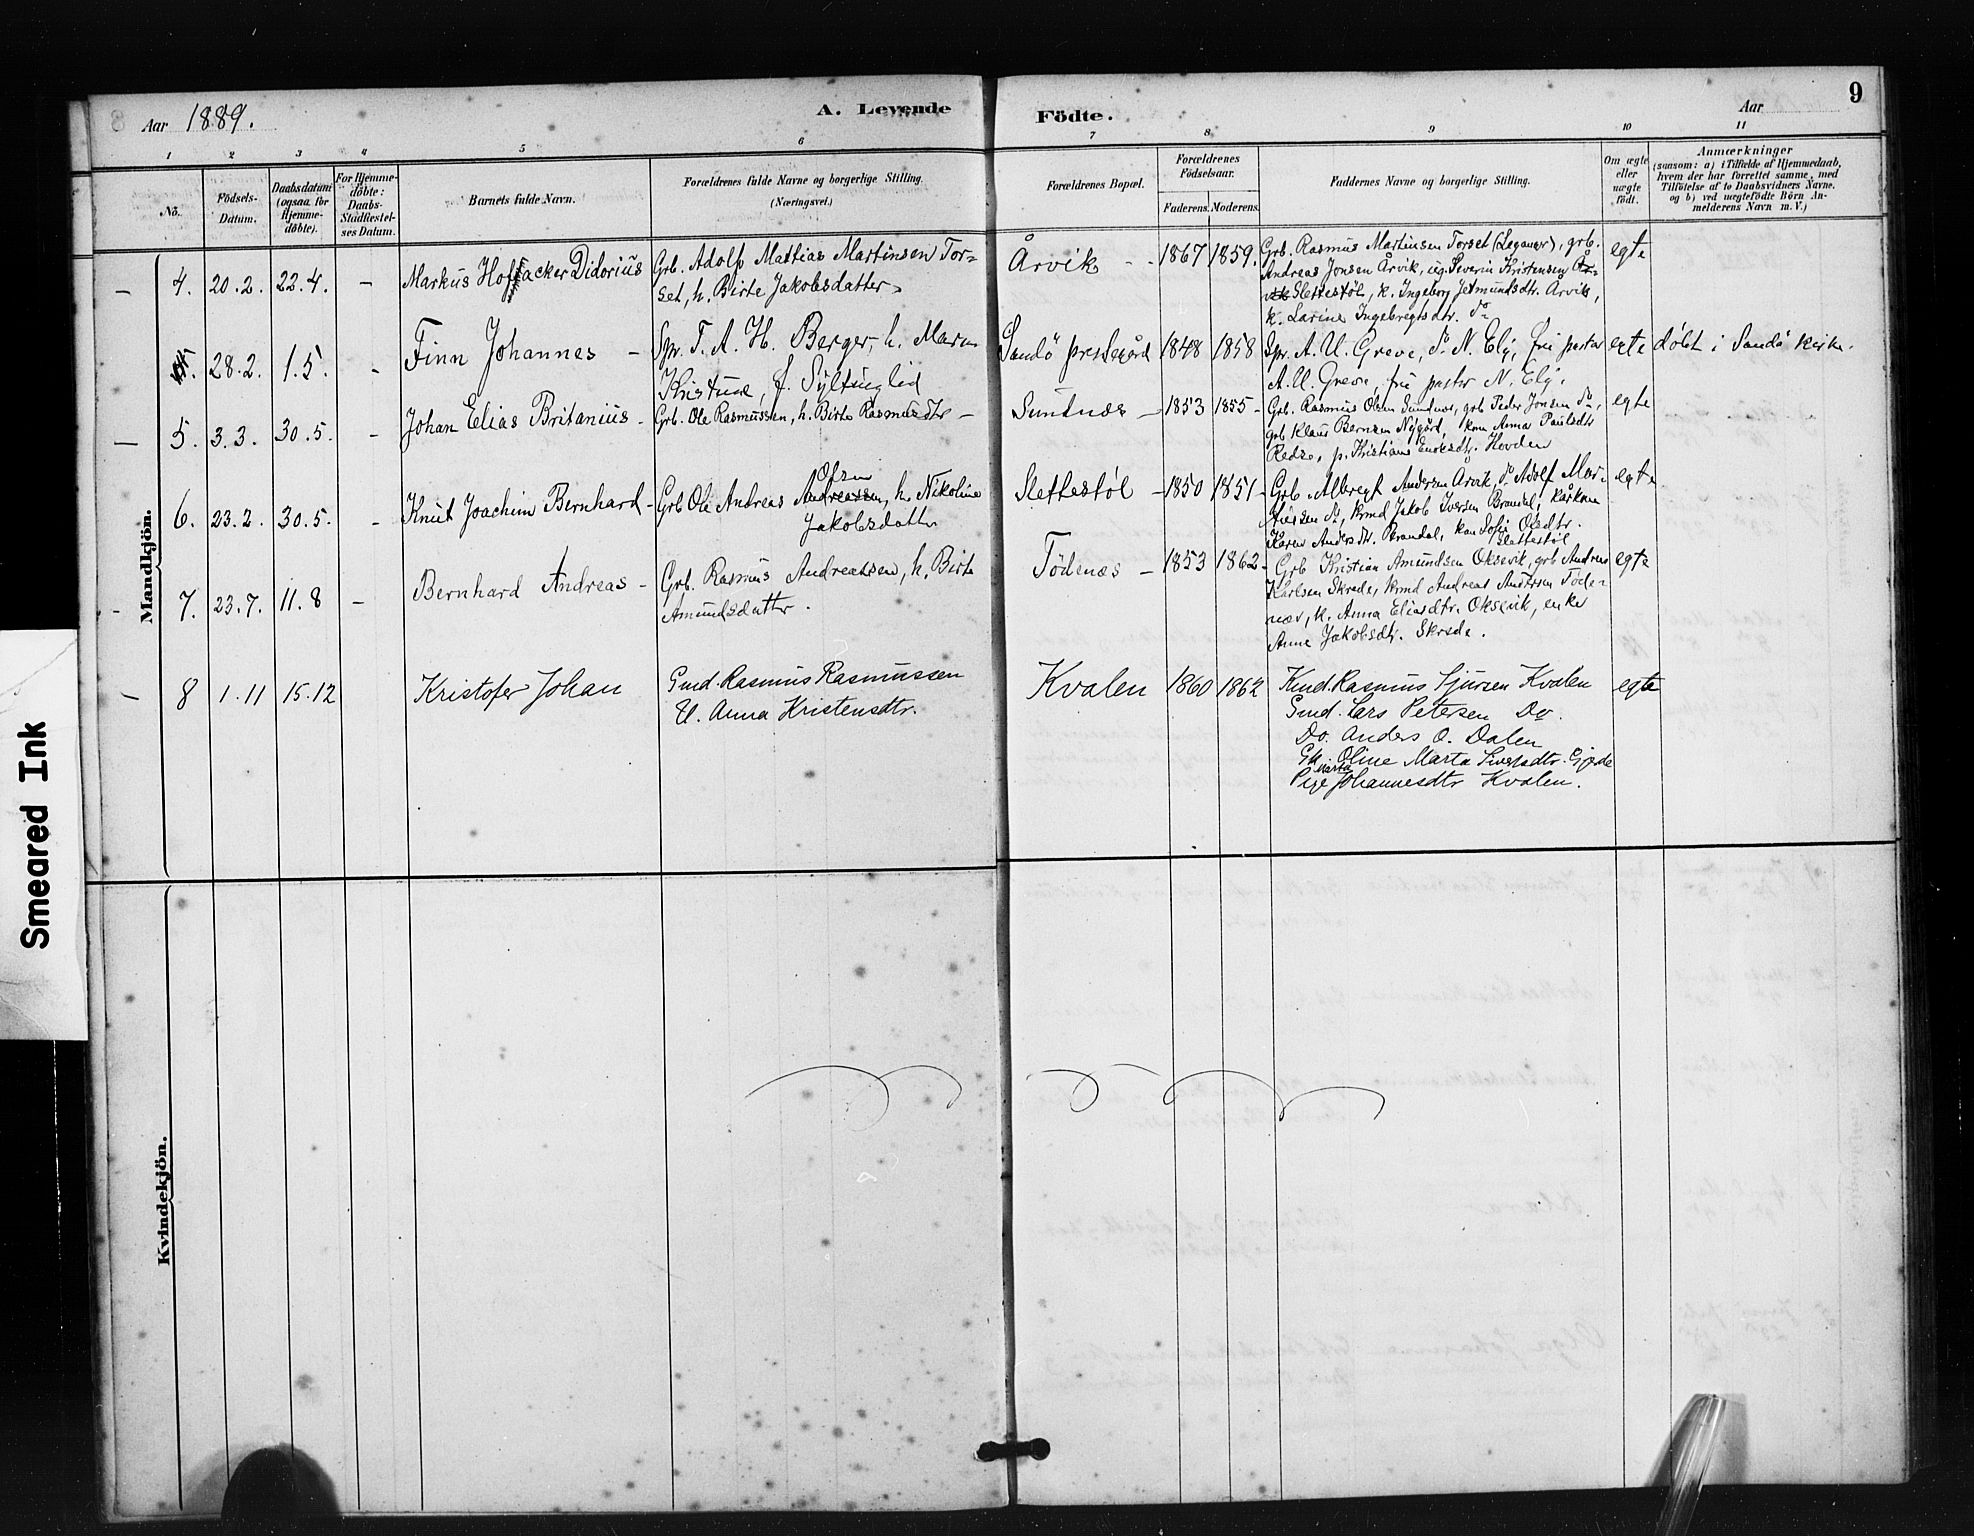 8 Aar 1889. A. Levende Födte. Aar 9
1 2 3 4 5 6 7 8 9 10 11
No.
Födsels-Datum.
Daabsdatum (ogsaa for Hjemme-döbte).
For Hjemme-döbte: Daabs-Stadfæstel-ses Datum.
Barnets fulde Navn.
Forældrenes fulde Navne og borgerlige Stilling.
(Næringsvei.)
Forældrenes Bopæl.
Forældrenes Födselsaar.
Faderens. Moderens.
Faddernes Navne og borgerlige Stilling.
Om ægte eller uægte födt.
Anmærkninger
(saasom: a) i Tilfælde af Hjemmedaab,
hvem der har forrettet samme, med
Tilföielse af to Daabsvidners Navne,
og b) ved uægtefödte Börn An-
melderens Navn m. V.)
Mandkjön.
4. 20.2. 22.4. - Markus Hoffacker Didorius
Grb. Adolf Mattias Martinsen Tor=
set, h. Birte Jakobsdatter
Årvik - 1867 1859.
Grb. Rasmus Martinsen Torset (Leganger), grb.
Andreas Jonsen Årvik, ug. Severin Kristensen
Slettestöl, k. Ingeborg Jetmundsdtr. Arvik,
k. Larine Ingebregtsdtr. Do
egte
28.2. 1.5. - Finn Johannes -
Spr. T. A. H. Berger, h. Maren
Kristine, f.
Sandö prestegård 1848 1858
Spr. A. U. Greve, Do N. Ely, frü pastor
A. U. Greve, frü pastor N. Ely.
egte döbt i Sandö kirke.
5. 3.3. 30.5. - Johan Elias Britanius -
Grb. Ole Rasmussen, h. Birte Rasmusdtr -
Sundnæs - 1853 1855 -
Grb. Rasmus Olsen Sundnæs, grb Peder Jonsen Do,
grb Klaus Berntsen Nygård, kone Anna Paulsdtr
p. Kristiane Enoksdtr. Hovden
egte
6. 23.2. 30.5. - Knut Joachim Bernhard -
Olsen
Grb Ole Andreas Andreassen, h. Nikoline
Jakobsdatter
Slettestöl - 1850 1851 -
Grb. Albregt Andersen Arvik, Do Adolf Mar-
tinsen Do, krmd Jakob Iversen Brandal, kårkone
Karen Andersdtr. Brandal, kone Sofie Olsdtr.
Slettestöl
egte
7. 23.7. 11.8 - Bernhard Andreas -
Grb. Rasmus Andreassen, h. Birte
Amundsdatter.
Tödenæs - 1853 1862 -
Grb Kristian Amundsen Oksevik, grb Andreas
Karlsen Skrede, krmd Andreas Andersen Töde-
næs, k. Anna Eliasdtr. Oksevik, enke
Anne Jakobsdtr. Skrede.
egte
8 1.11 15.12 Kristofer Johan
Gmd. Rasmus Rasmussen
U. Anna Kristensdtr.
Kvalen 1860 1862
Kmd. Rasmus Sjursen Kvalen
Gmd. Lars Petersen Do.
Do. Anders O. Dalen
Gk. Oline Marta
Marta
Pige Johannesdtr Kvalen.
egte
Kvindekjön.
Smeared Ink